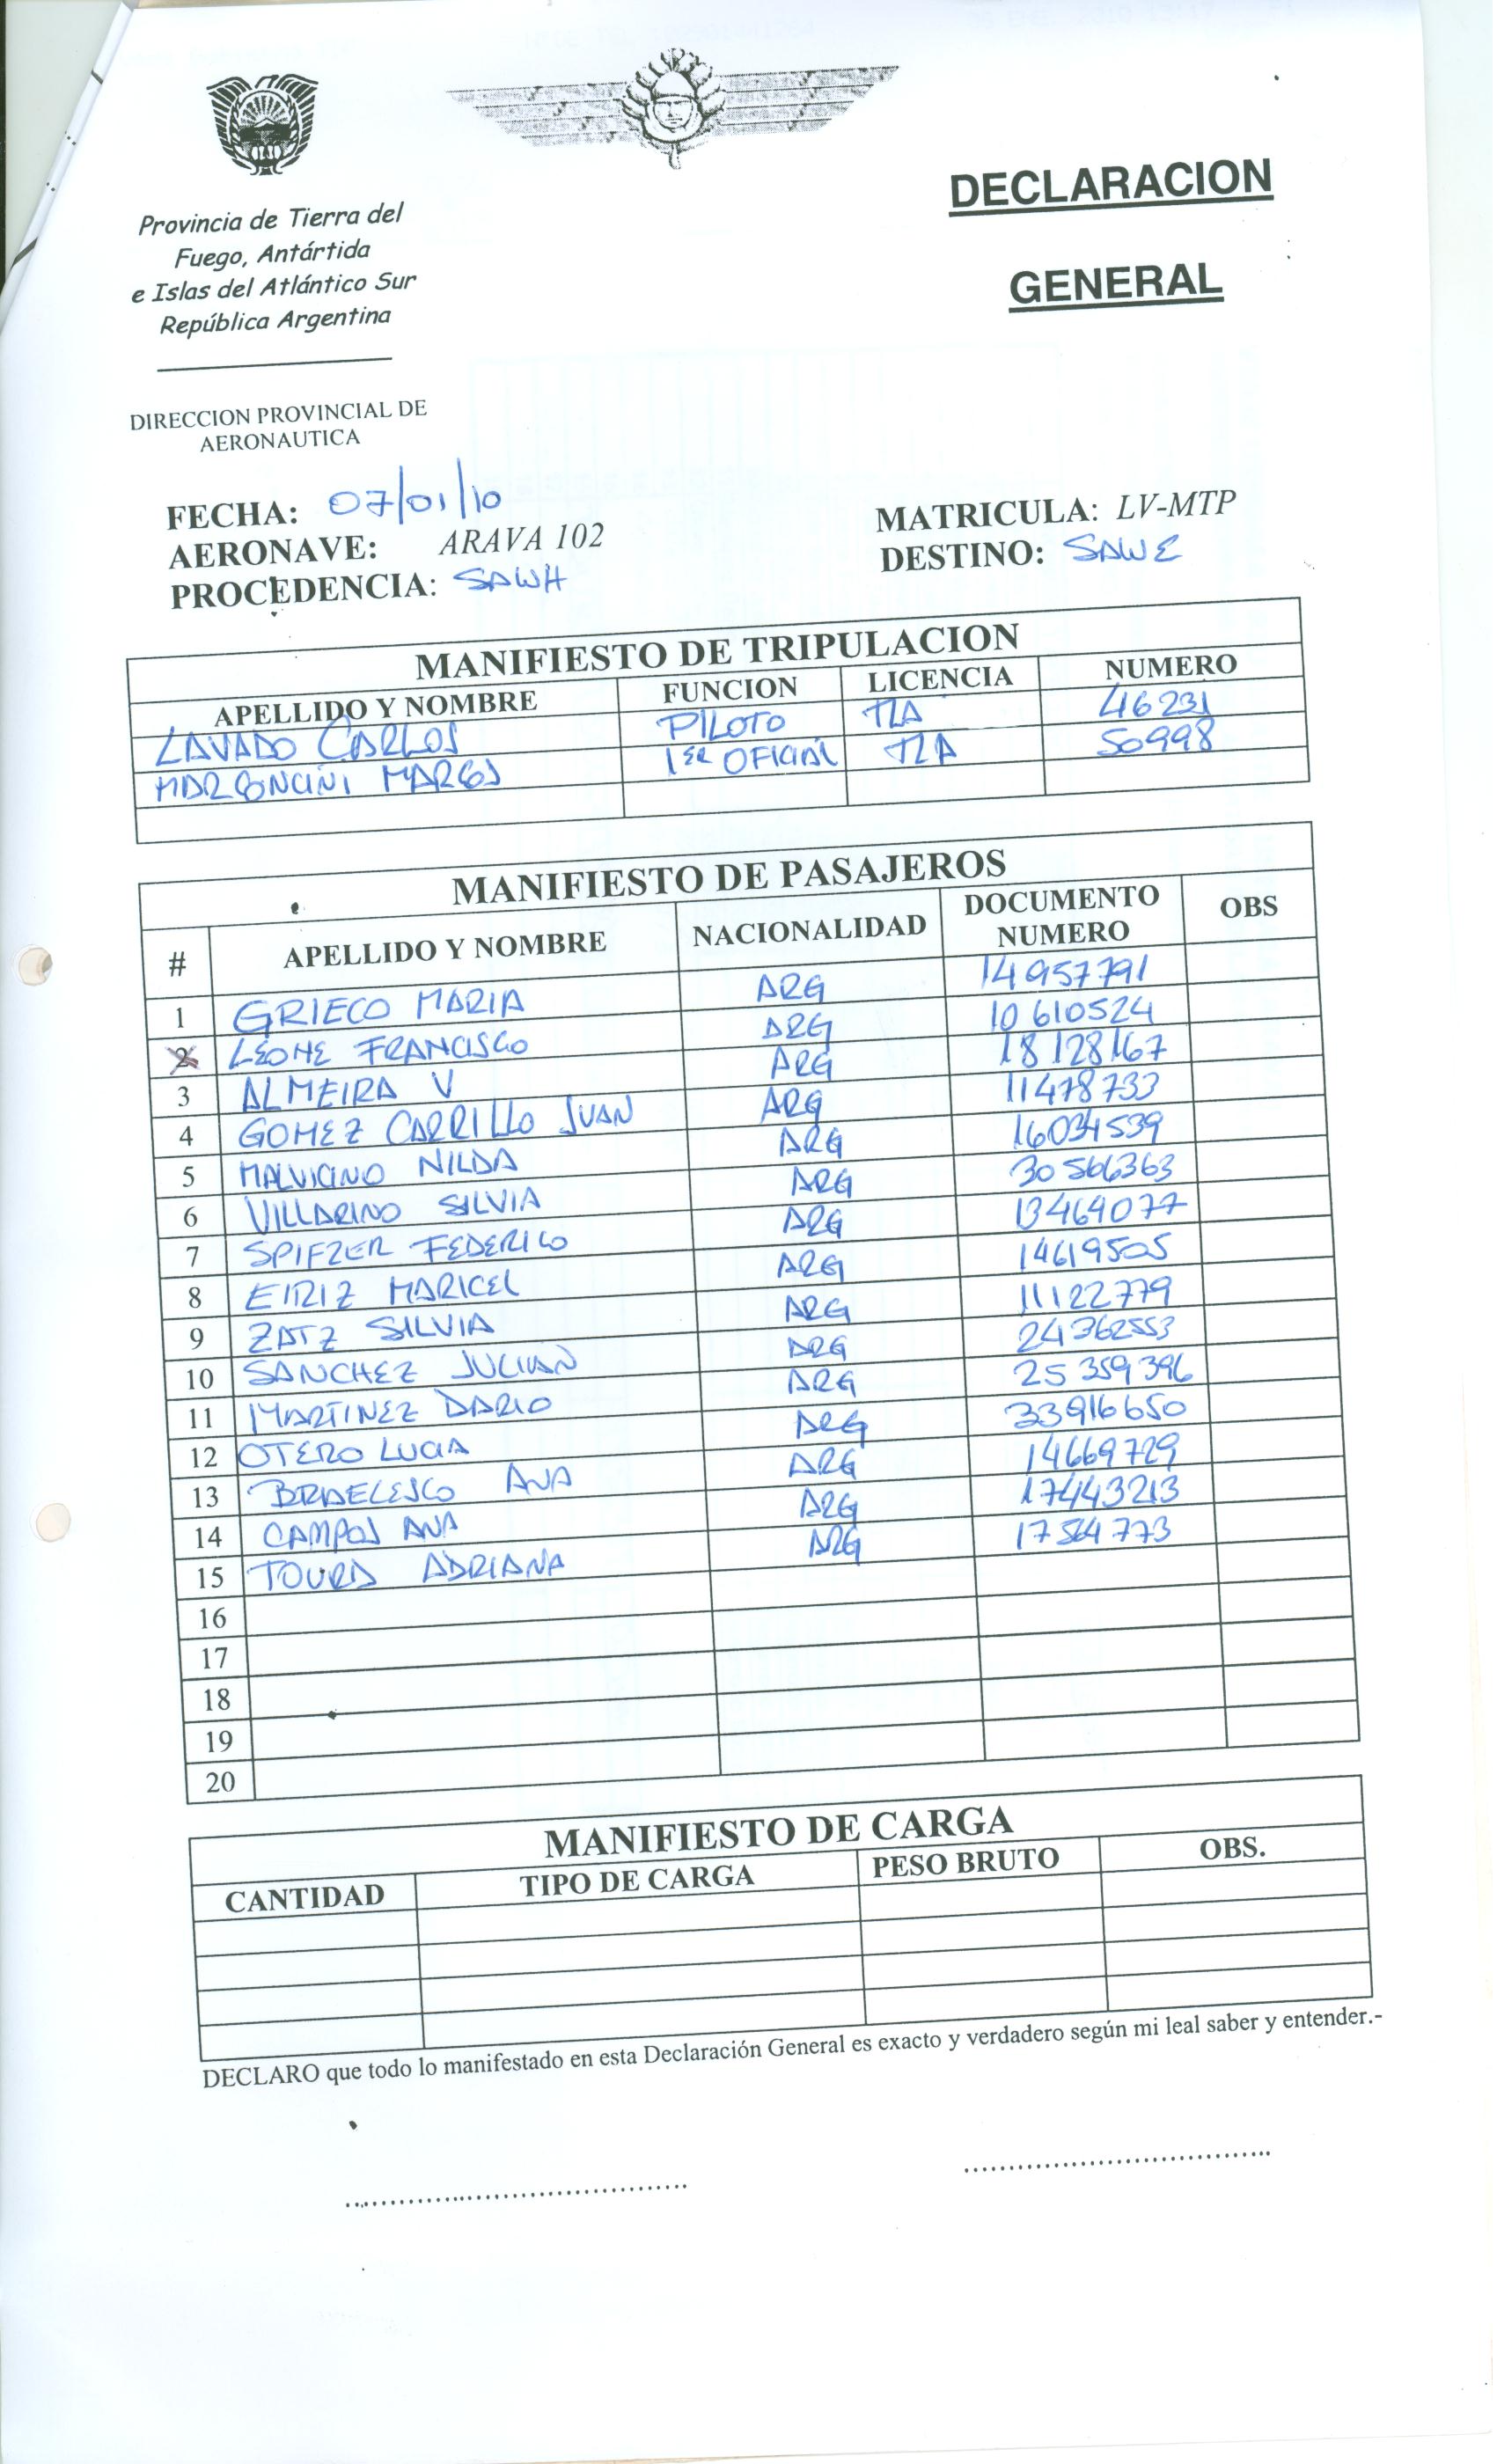 DECLARACION
GENERAL
Provincia de Tierra del
Fuego, Antártida
e Islas del Atlántico Sur
República Argentina
DIRECCION PROVINCIAL DE
AERONAUTICA
FECHA: 07/01/10
AERONAVE: ARAVA 102
PROCEDENCIA: SAWH
MATRICULA: LV-MTP
DESTINO: SAWE
MANIFIESTO DE TRIPULACION
APELLIDO Y NOMBRE FUNCION LICENCIA NUMERO
LAVADO CARLOS PILOTO TLA 46231
MARCONCINI MARCOS 1ER OFICIAL TLA 50998
MANIFIESTO DE PASAJEROS
# APELLIDO Y NOMBRE NACIONALIDAD DOCUMENTO NUMERO OBS
1 GRIECO MARIA ARG 14957791
2 LEONE FRANCISCO ARG 10610524
3 ALMEIRA V ARG 18128167
4 GOMEZ CARRILLO JUAN ARG 11478733
5 MALVICINO NILDA ARG 16034539
6 VILLARINO SILVIA ARG 30566363
7 SPIFZER FEDERICO ARG 13469077
8 EIRIZ MARICEL ARG 14619505
9 ZATZ SILVIA ARG 11122779
10 SANCHEZ JULIAN ARG 24362553
11 MARTINEZ DARIO ARG 25359396
12 OTERO LUCIA ARG 33916650
13 BRAELESCO ANA ARG 14669729
14 CAMPOS ANA ARG 17443213
15 TOURA ADRIANA ARG 17564773
16
17
18
19
20
MANIFIESTO DE CARGA
CANTIDAD TIPO DE CARGA PESO BRUTO OBS.
DECLARO que todo lo manifestado en esta Declaración General es exacto y verdadero según mi leal saber y entender.-